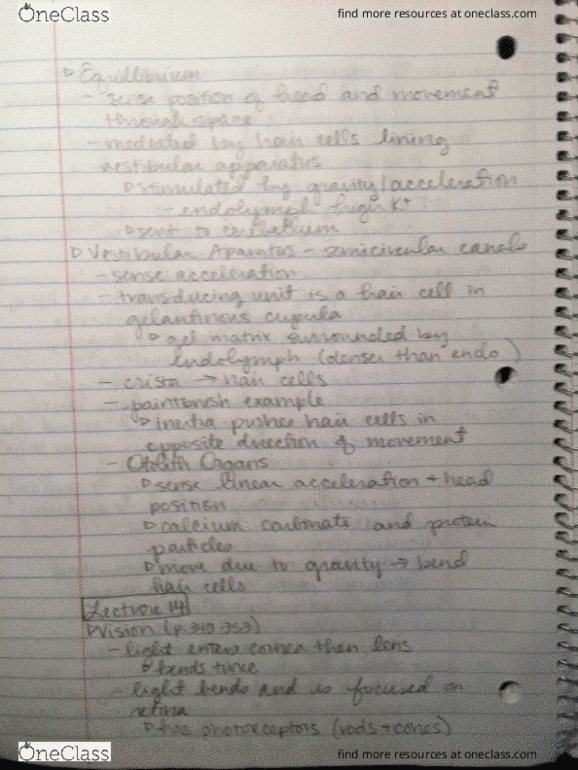 OneClass
find more resources at oneclass.com
▷ Equilibrium
- sense position of head and movement
through space
- mediated by hair cells lining
vestibular apparatus
▷ stimulated by gravity/acceleration
- endolymph high K+
▷ sent to cerebellum
▷ Vestibular Aparatus - semicircular canals
- sense acceleration
- transducing unit is a hair cell in
gelantinous cupula
▷ gel matrix surrounded by
endolymph (denser than endo)
- crista → hair cells
- paintbrush example
▷ inertia pushes hair cells in
opposite direction of movement
- Otolith Organs
▷ sense linear acceleration + head
position
▷ calcium carbonate and protein
particles
▷ move due to gravity → bend
hair cells
Lecture 14
Vision (p. 340-353)
- light enters cornea then lens
bends twice
- light bends and is focused on
retina
▷ has photoreceptors (rods + cones)
OneClass
find more resources at oneclass.com